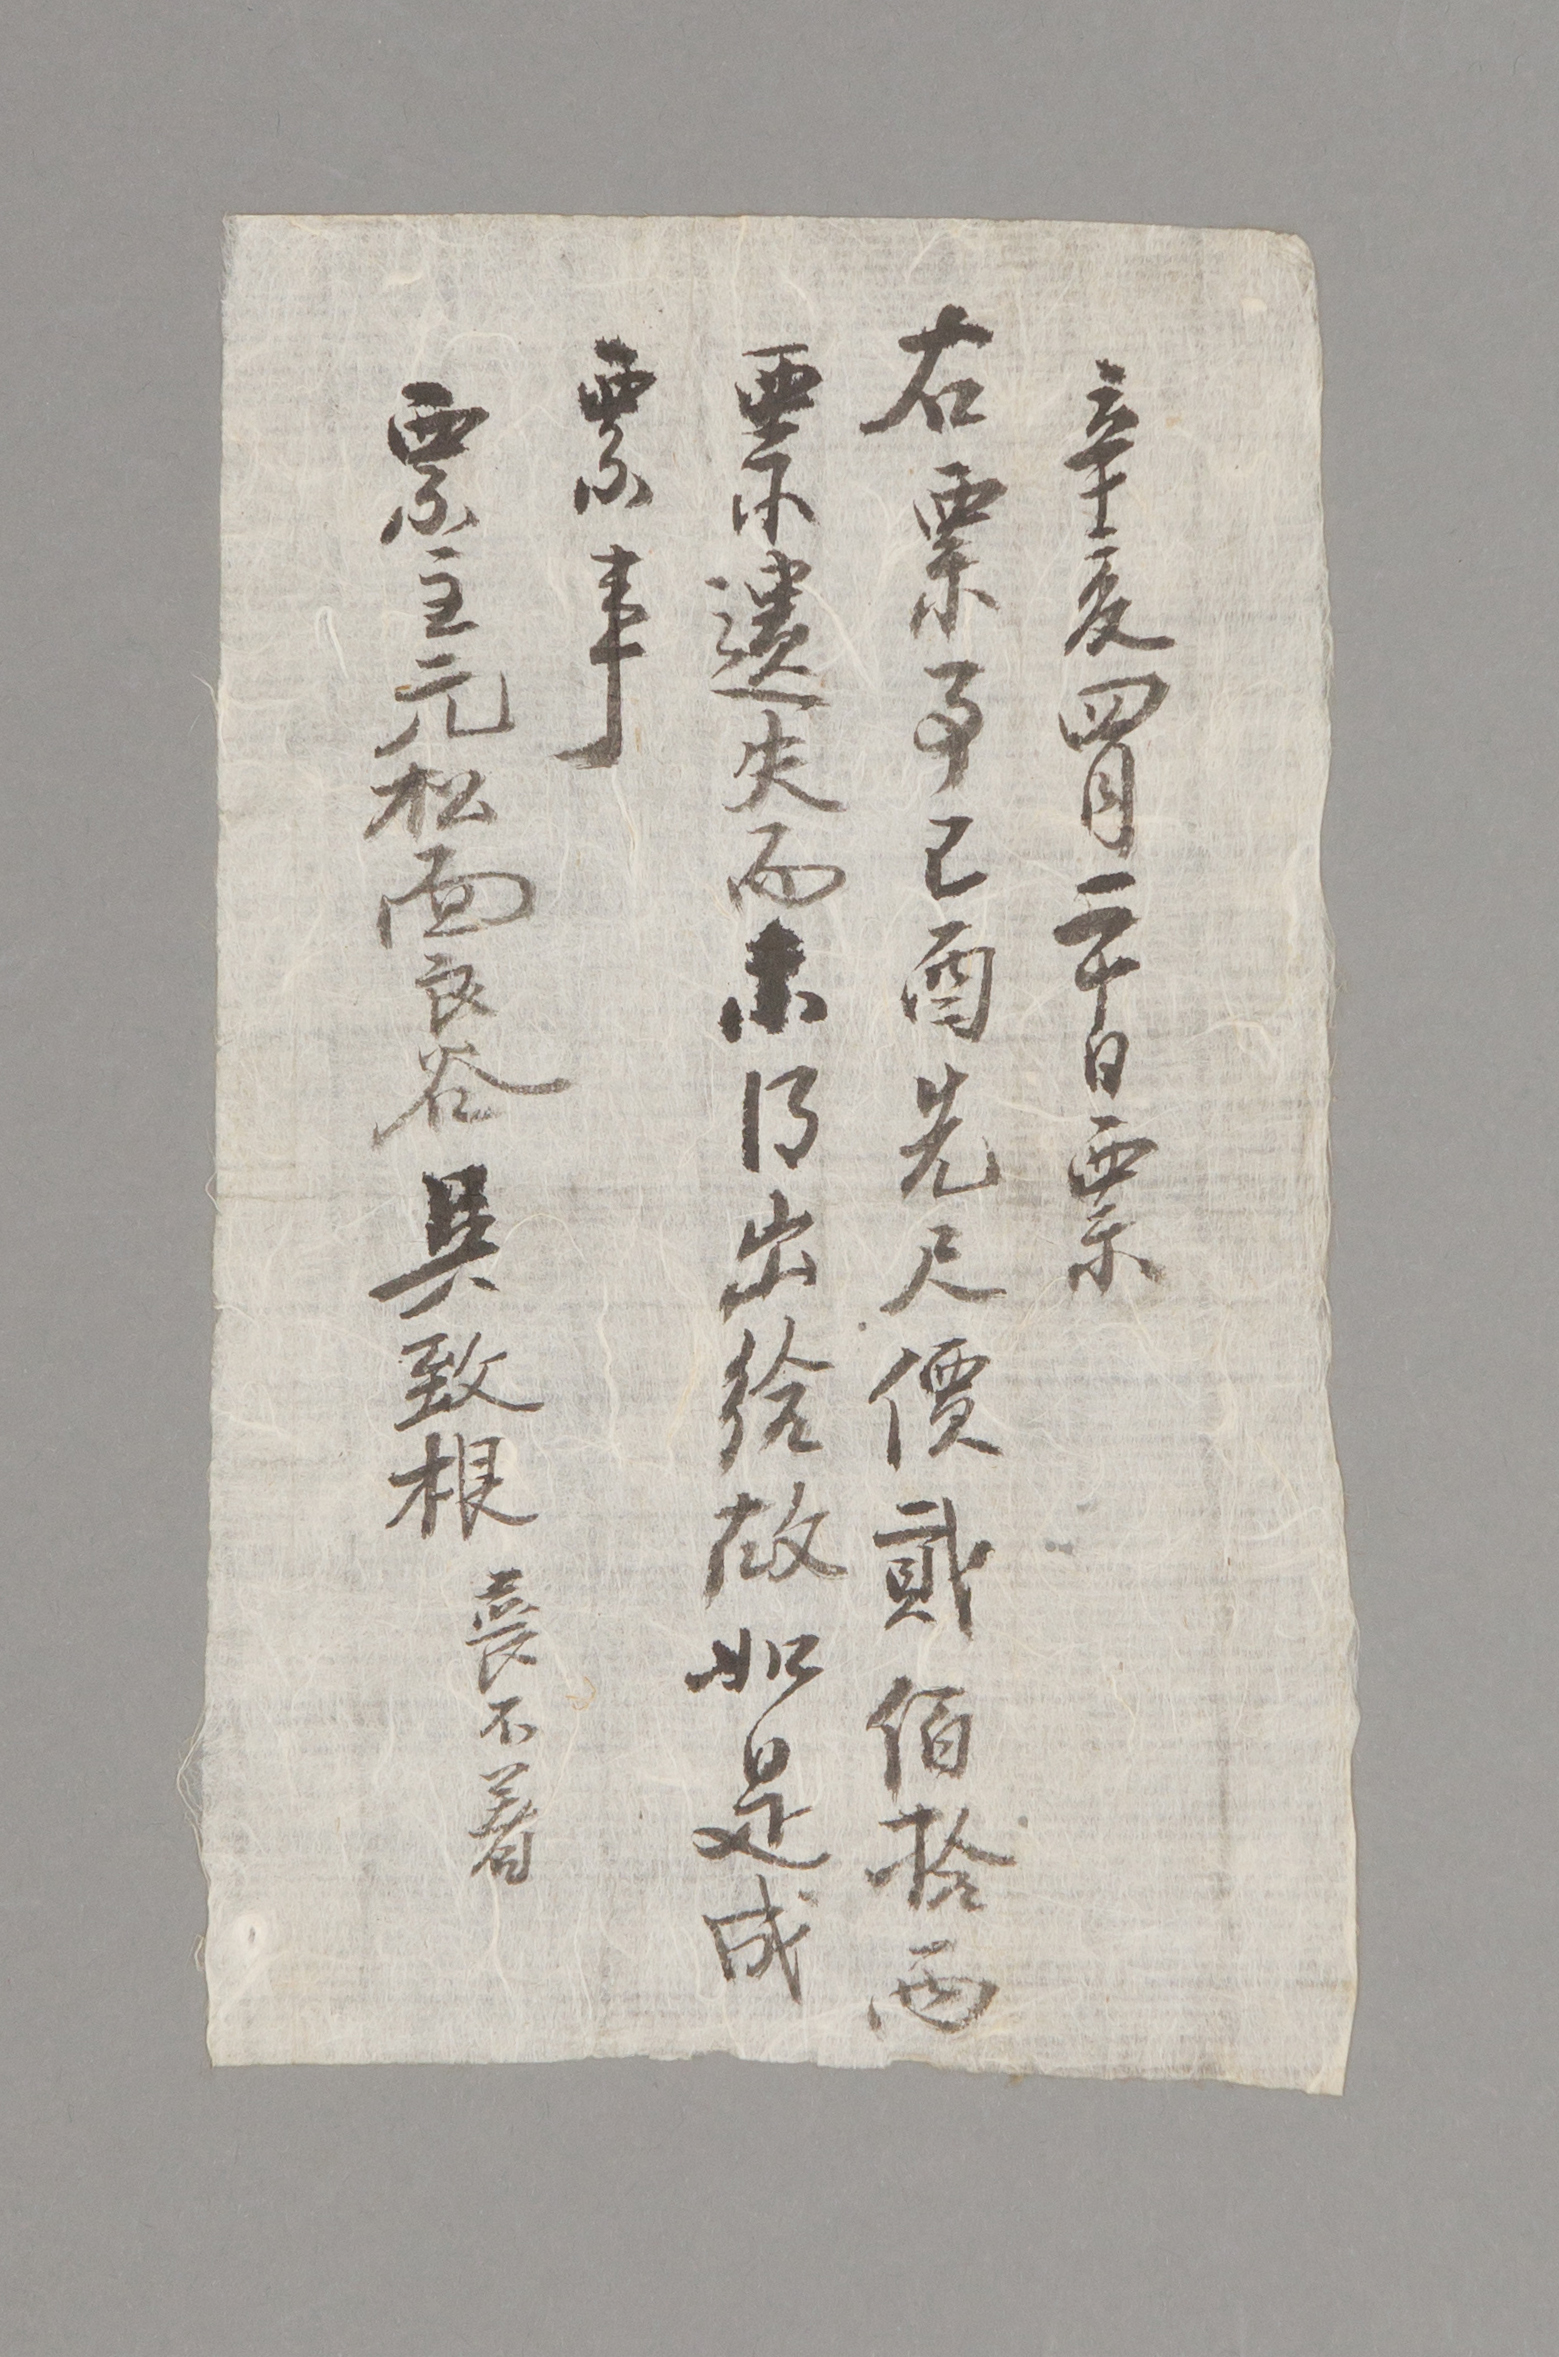 辛亥四月二十日票
右票事己酉先尺價貳佰拾兩
票不遺失而未得出給故如是成
票事
票主元松面良谷吳致根喪不着